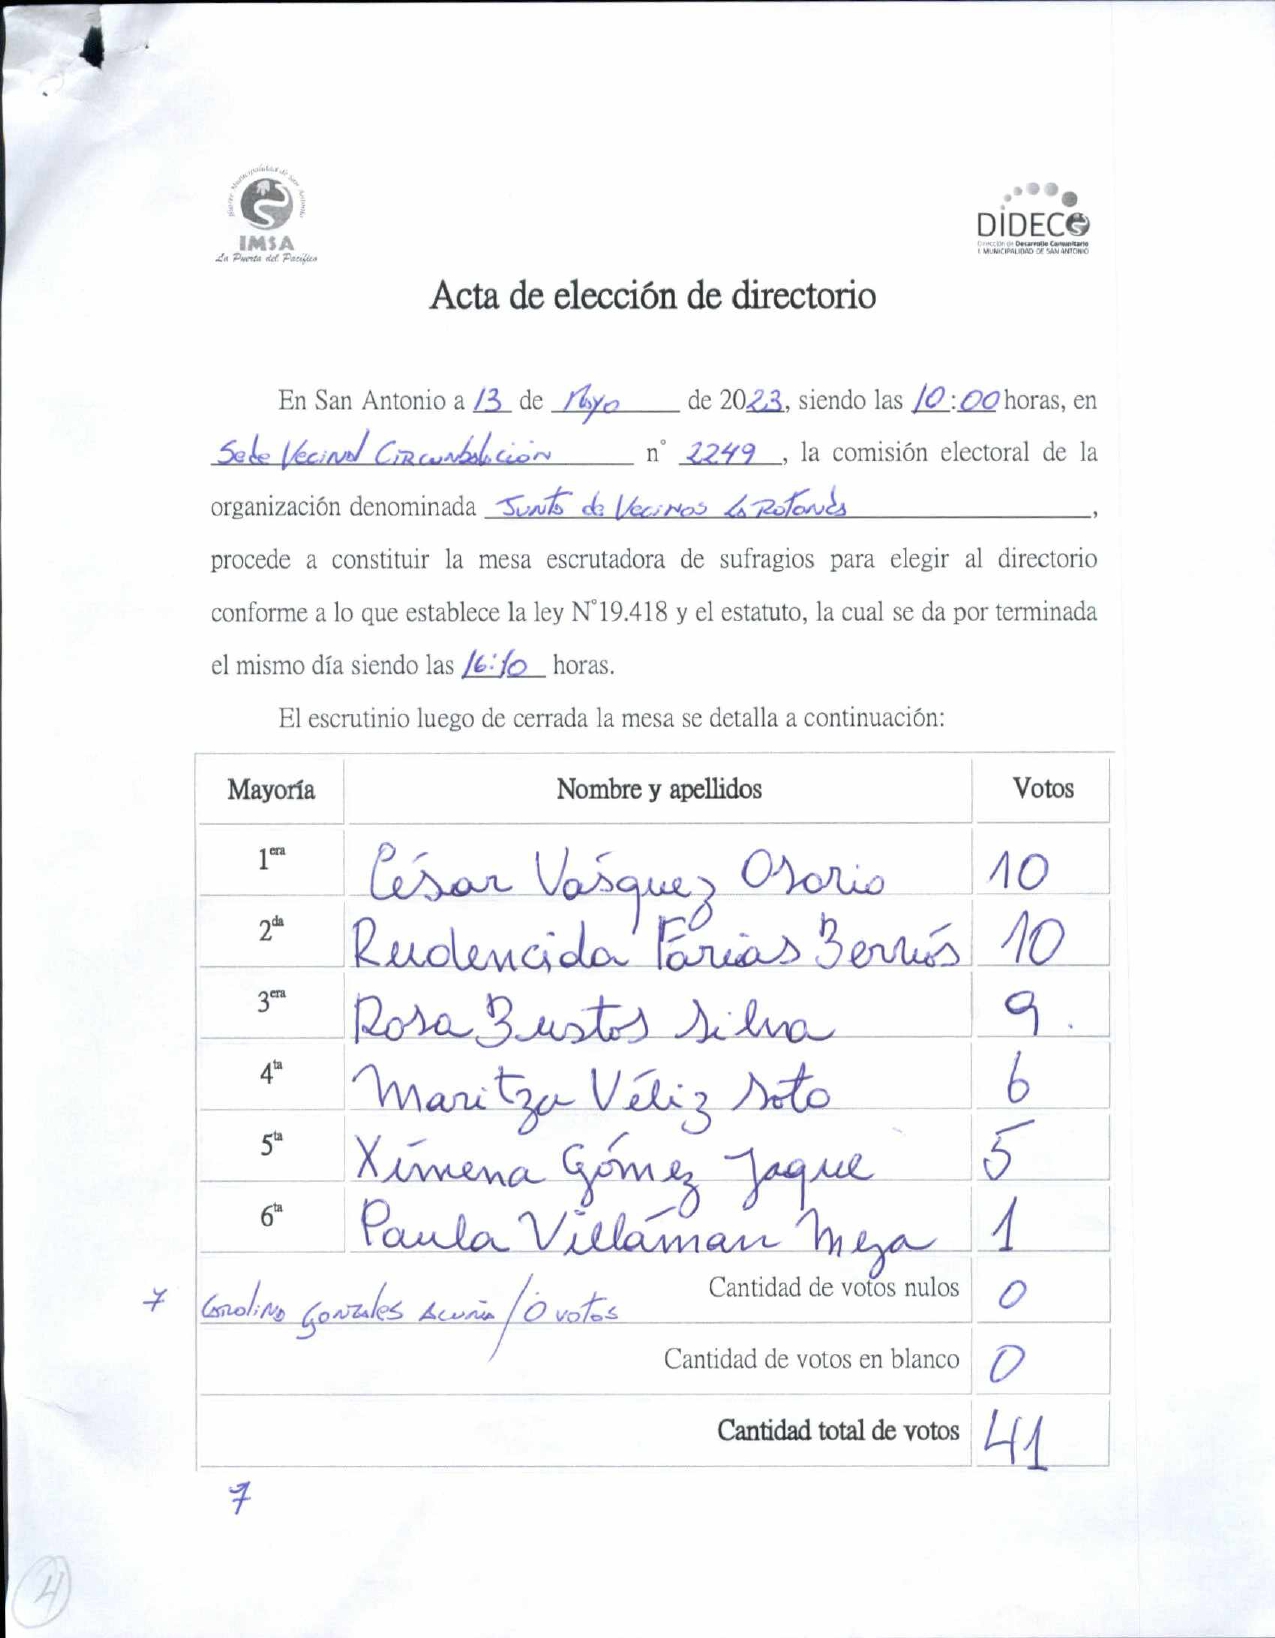 IMSA
La Puerta del Pacífico
DIDECO
Dirección de Desarrollo Comunitario
I. MUNICIPALIDAD DE SAN ANTONIO
Acta de elección de directorio
En San Antonio a 13 de Mayo de 2023, siendo las 10:00 horas, en
Sede Vecinal Circunvalación n° 2249, la comisión electoral de la
organización denominada Junta de Vecinos La Rotonda,
procede a constituir la mesa escrutadora de sufragios para elegir al directorio
conforme a lo que establece la ley N°19.418 y el estatuto, la cual se da por terminada
el mismo día siendo las 16:10 horas.
El escrutinio luego de cerrada la mesa se detalla a continuación:
Mayoría Nombre y apellidos Votos
1era César Vásquez Osorio 10
2da Rudencida Farías Berríos 10
3era Rosa Bustos Silva 9.
4ta Maritza Véliz Soto 6
5ta Ximena Gómez Jaque 5
6ta Paula Villámán Meza 1
Cantidad de votos nulos 0
7 Carolina Gonzales Acuña / 0 votos
Cantidad de votos en blanco 0
Cantidad total de votos 41
7
4